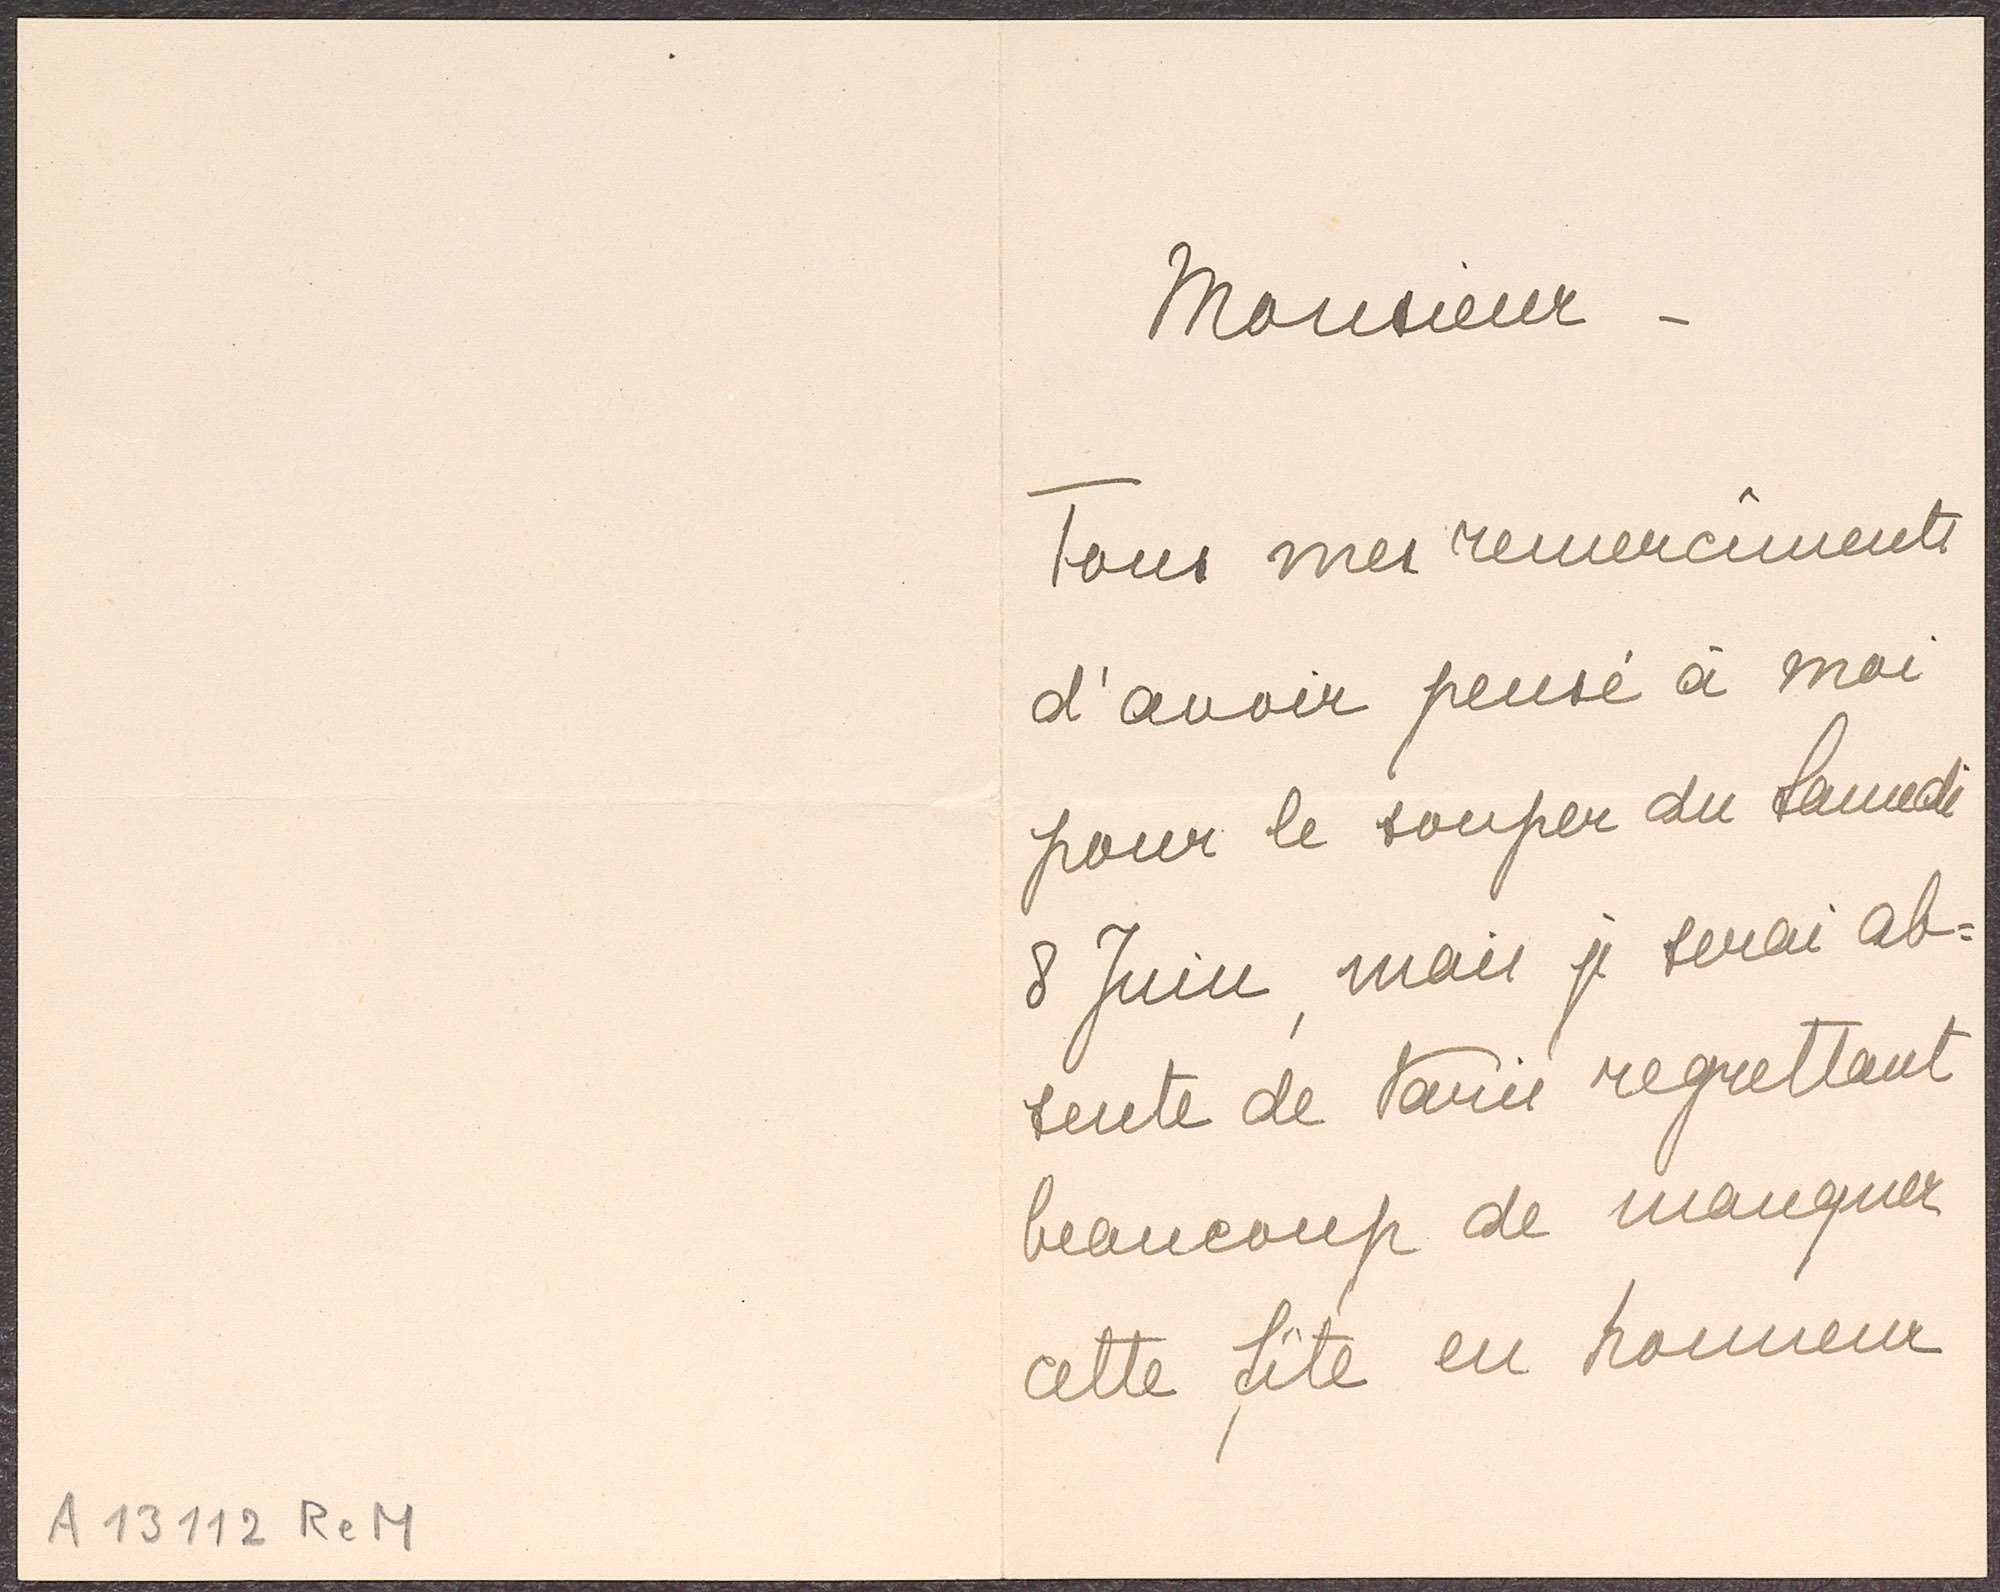 Monsieur -
Tous mes remercîments
d'avoir pensé à moi
pour le souper du Samedi
8 Juin, mais je serai ab=
sente de Paris regrettant
beaucoup de manquer
cette fête en honneur
A 13112 ReM